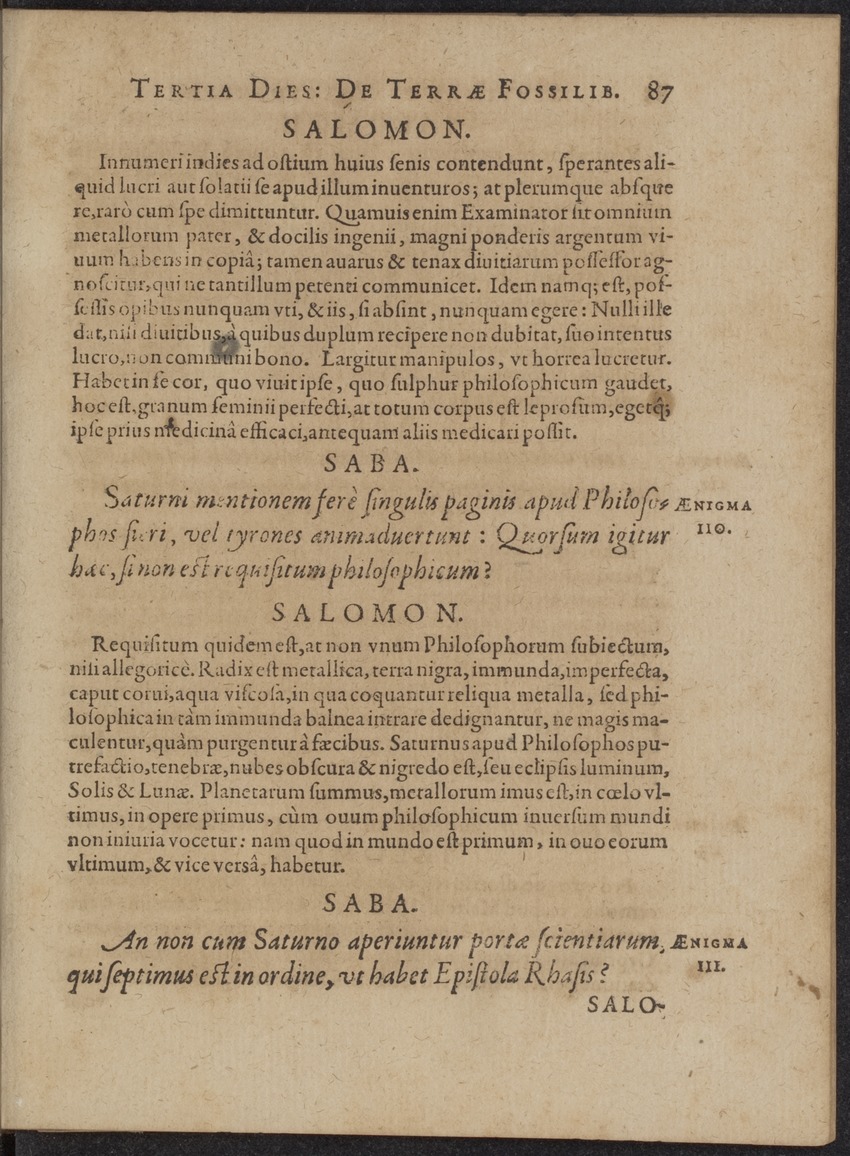 TERTIA DIES: DE TERRÆ FOSSILIB. 87
SALOMON.
Innumeri indies ad oſtium huius ſenis contendunt, ſperantes ali-
quid lucri aut ſolatii ſe apud illum inuenturos; at plerumque abſque
re, rarò cum ſpe dimittuntur. Quamuis enim Examinator ſit omnium
metallorum pater, & docilis ingenii, magni ponderis argentum vi-
uum habens in copiâ; tamen auarus & tenax diuitiarum poſſeſſor ag-
noſcitur, qui ne tantillum petenti communicet. Idem namq; eſt, poſ-
ſeſſis opibus nunquam vti, & iis, ſi abſint, nunquam egere: Nulli ille
dat, niſi diuitibus, à quibus duplum recipere non dubitat, ſuo intentus
lucro, non communi bono. Largitur manipulos, vt horrea lucretur.
Habet in ſe cor, quo viuit ipſe, quo ſulphur philoſophicum gaudet,
hoc eſt, granum ſeminii perfecti, at totum corpus eſt leproſum, egetq́;
ipſe prius medicinâ efficaci, antequam aliis medicari poſſit.
SABA.
Saturni mentionem ferè ſingulis paginis apud Philoſo- ÆNIGMA
phos fieri, vel tyrones animaduertunt: Quorſum igitur 110.
hæc, ſi non eſt requiſitum philoſophicum?
SALOMON.
Requiſitum quidem eſt, at non vnum Philoſophorum ſubiectum,
niſi allegoricè. Radix eſt metallica, terra nigra, immunda, imperfecta,
caput corui, aqua viſcoſa, in qua coquantur reliqua metalla, ſed phi-
loſophica in tàm immunda balnea intrare dedignantur, ne magis ma-
culentur, quàm purgentur à fæcibus. Saturnus apud Philoſophos pu-
trefactio, tenebræ, nubes obſcura & nigredo eſt, ſeu eclipſis luminum,
Solis & Lunæ. Planetarum ſummus, metallorum imus eſt, in cœlo vl-
timus, in opere primus, cùm ouum philoſophicum inuerſum mundi
non iniuria vocetur: nam quod in mundo eſt primum, in ouo eorum
vltimum, & vice versâ, habetur.
SABA.
An non cum Saturno aperiuntur portæ ſcientiarum, ÆNIGMA
qui ſeptimus eſt in ordine, vt habet Epiſtola Rhaſis? 111.
SALO-